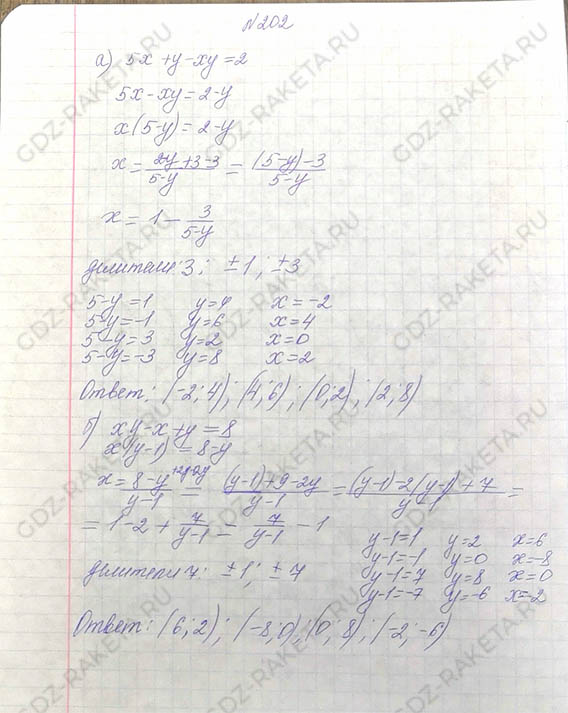 N202
а) 5x + y - xy = 2
5x - xy = 2 - y
x(5-y) = 2 - y
x = 2-y+3-3 / 5-y = (5-y)-3 / 5-y
x = 1 - 3 / 5-y
делители 3: ±1; ±3
5-y=1 y=4 x=-2
5-y=-1 y=6 x=4
5-y=3 y=2 x=0
5-y=-3 y=8 x=2
Ответ: (-2;4); (4;6); (0;2); (2;8)
б) xy - x + y = 8
x(y-1) = 8-y
x = 8-y+2y-2y / y-1 = (y-1)+9-2y / y-1 = (y-1)-2(y-1)+7 / y-1 =
= 1-2 + 7 / y-1 = 7 / y-1 - 1
делители 7: ±1; ±7
y-1=1 y=2 x=6
y-1=-1 y=0 x=-8
y-1=7 y=8 x=0
y-1=-7 y=-6 x=-2
Ответ: (6;2); (-8;0); (0;8); (-2;-6)
GDZ-RAKETA.RU